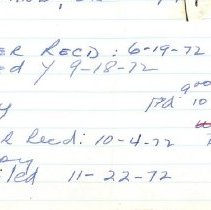 ER RECD: 6-19-72
ed Y 9-18-72
y Pd. 9 00
10
R Recd: 10-4-72
ay
iled 11-22-72